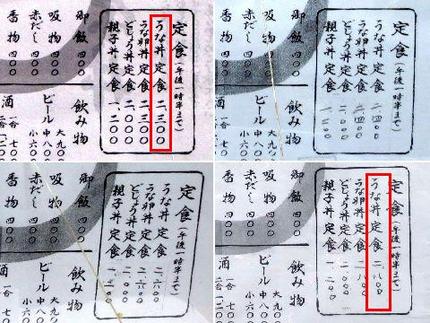 定食(午後一時半まで)
うな丼定食 二、三〇〇
うな卵丼定食 二、三〇〇
どじょう丼定食 一、二〇〇
親子丼定食 一、二〇〇
御飯 四〇〇
吸物 四〇〇
赤だし 四〇〇
香物 四〇〇
飲み物
ビール 大九〇 中八〇 小六〇
酒 一合 七〇
定食(午後一時半まで)
うな丼定食
うな卵丼定食
どじょう丼定食
親子丼定食
御飯 四〇〇
吸物 四〇〇
赤だし 四〇〇
香物 四〇〇
飲み物
ビール 大九〇 中八〇 小六〇
酒 一合 七〇
定食(午後一時半まで)
うな丼定食 二、六〇〇
うな卵丼定食
どじょう丼定食
親子丼定食
御飯 四〇〇
吸物 四〇〇
赤だし 四〇〇
香物 四〇〇
飲み物
ビール 大九〇 中八〇 小六〇
酒 一合 七〇
定食(午後一時半まで)
うな丼定食 二、八〇〇
うな卵丼定食
どじょう丼定食
親子丼定食
御飯 四〇〇
吸物 四〇〇
赤だし 四〇〇
香物 四〇〇
飲み物
ビール 大九〇 中八〇 小六〇
酒 一合 七〇